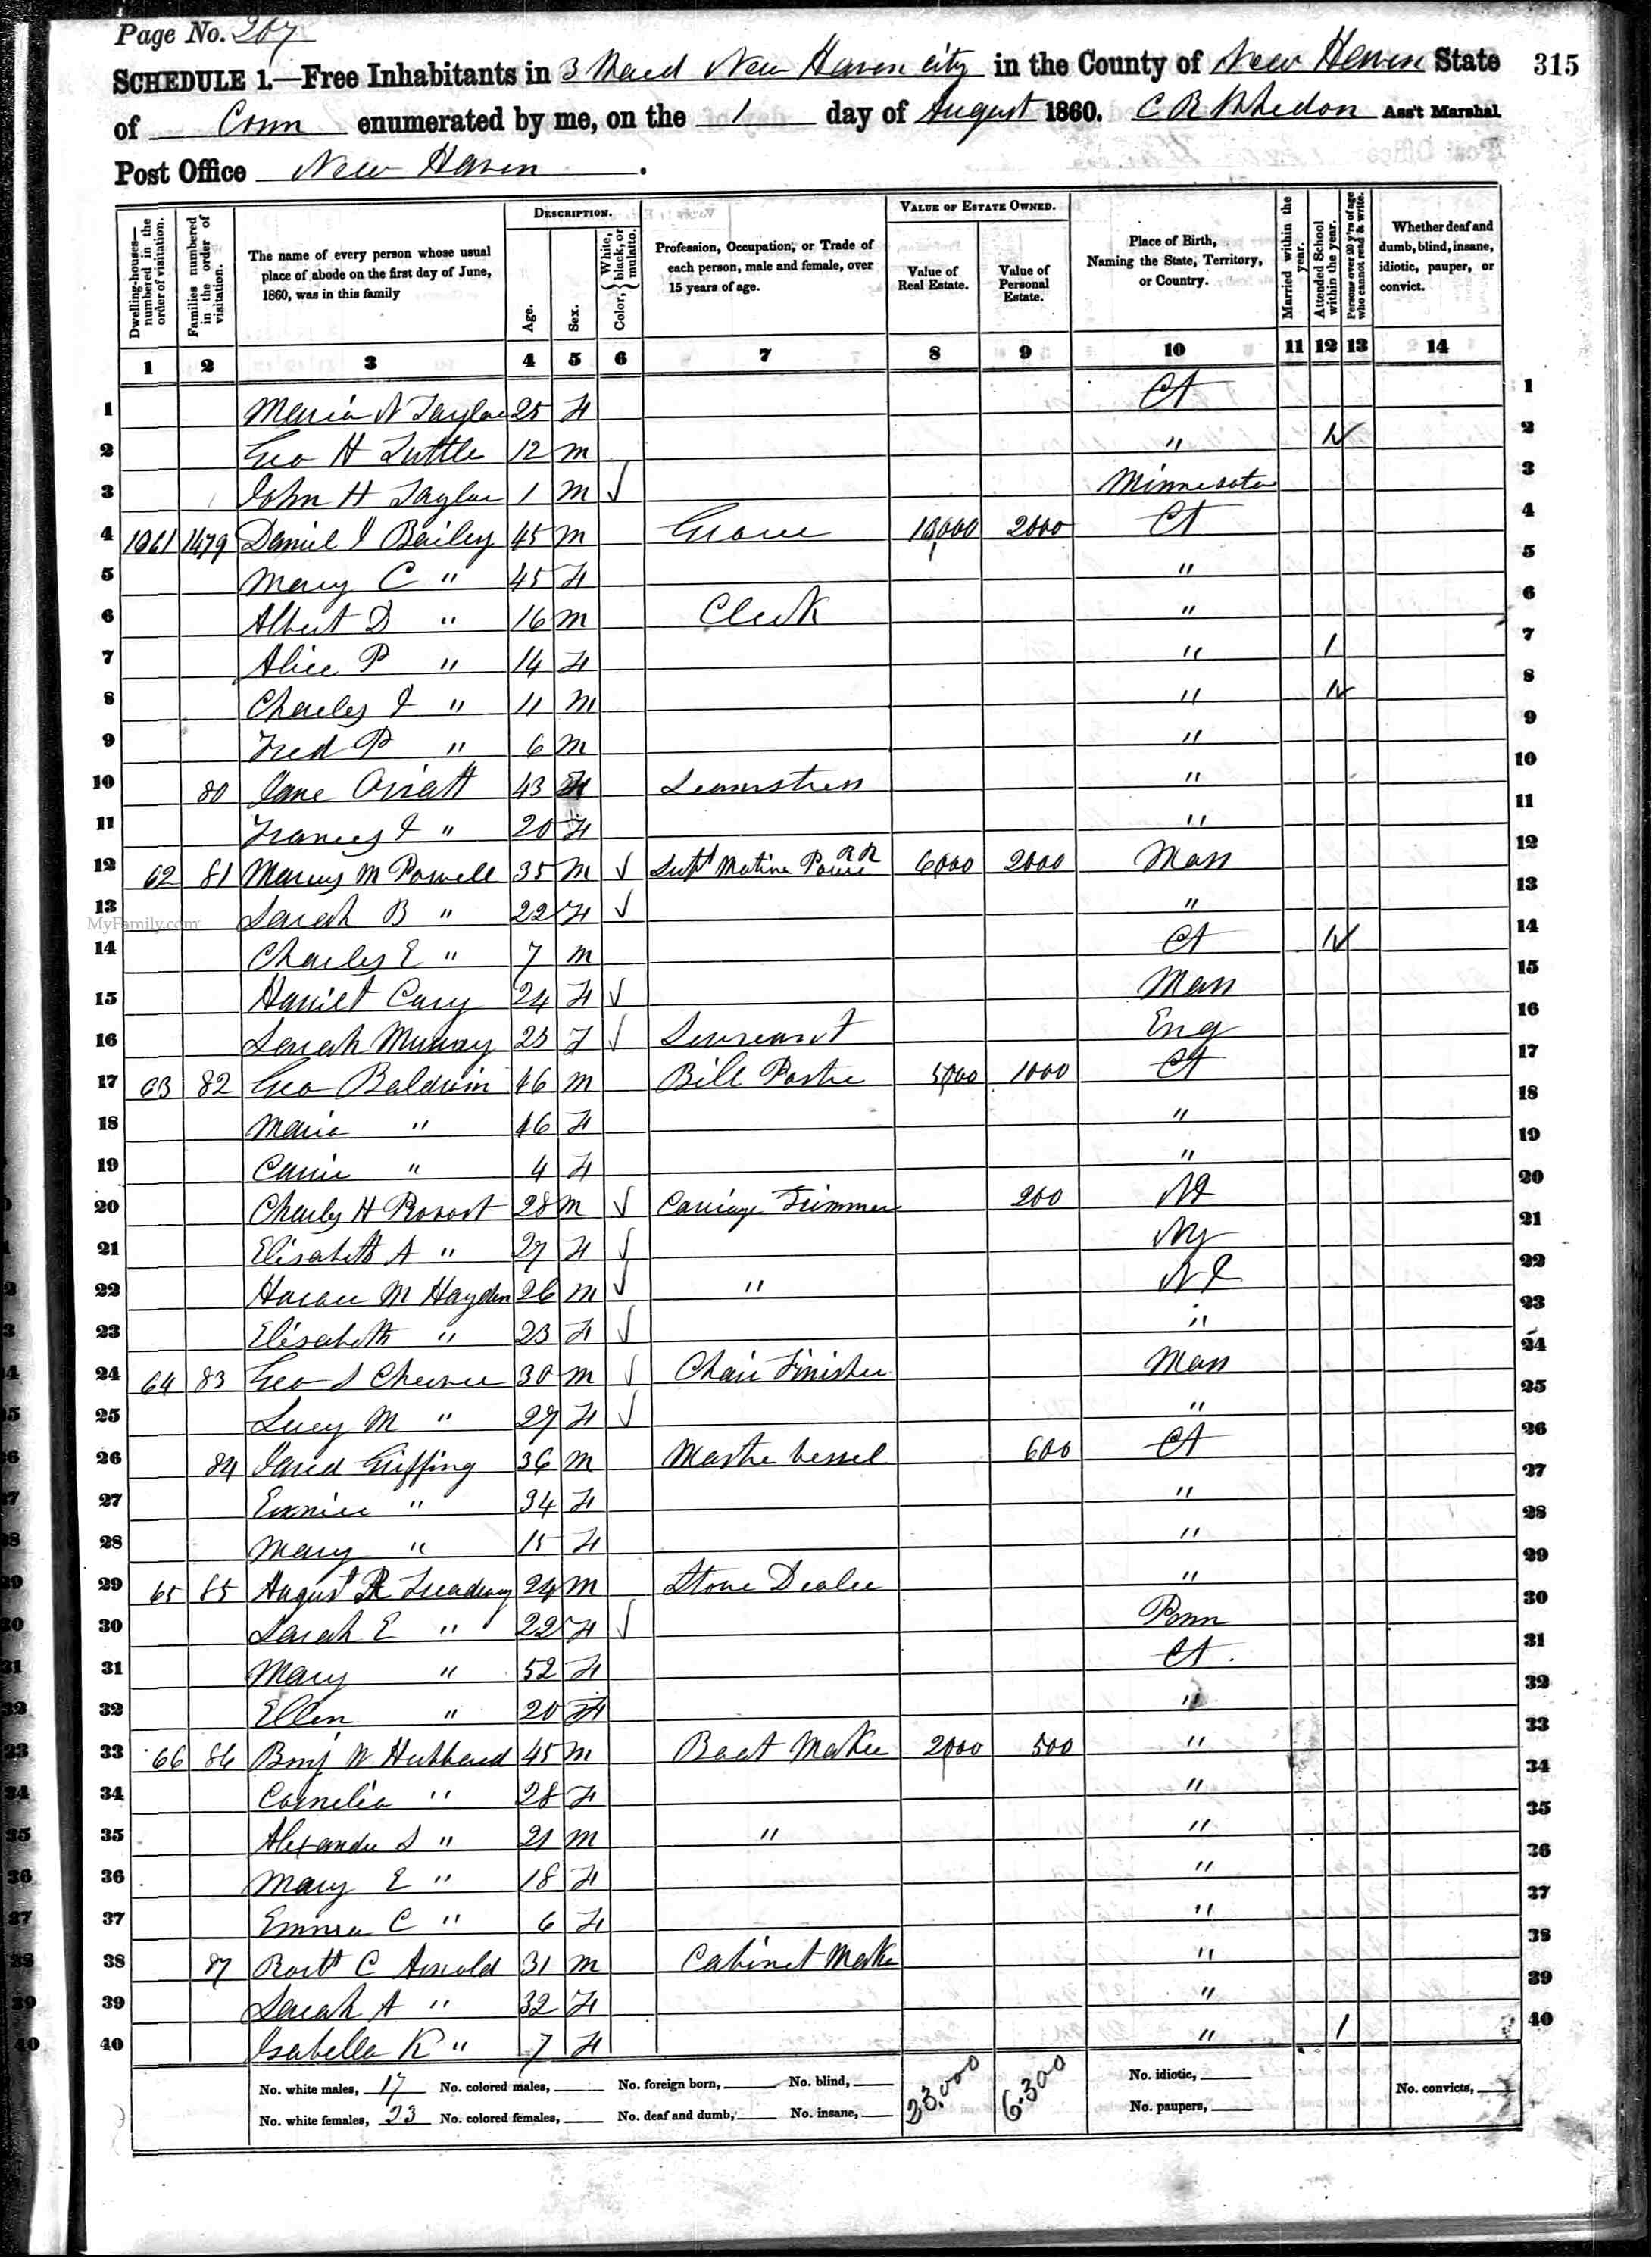 Page No. 207
SCHEDULE 1.—Free Inhabitants in 3 Ward New Haven City in the County of New Haven State 315
of Conn enumerated by me, on the 1 day of August 1860. C R Whedon Ass't Marshal
Post Office New Haven.
Dwelling-houses—numbered in the order of visitation. Families numbered in the order of visitation. The name of every person whose usual place of abode on the first day of June, 1860, was in this family Description. Age. Sex. Color, {White, black, or mulatto. Profession, Occupation, or Trade of each person, male and female, over 15 years of age. Value of Estate Owned. Value of Real Estate. Value of Personal Estate. Place of Birth, Naming the State, Territory, or Country. Married within the year. Attended School within the year. Persons over 20 y'rs of age who cannot read & write. Whether deaf and dumb, blind, insane, idiotic, pauper, or convict.
1 2 3 4 5 6 7 8 9 10 11 12 13 14
1 Maria N Taylor 25 F Ct 1
2 Geo H Tuttle 12 m " 1 2
3 John H Taylor 1 m ✓ Minnesota 3
4 1061 1479 Daniel I Bailey 45 m 10,000 2000 Ct 4
5 Mary C " 45 F " 5
6 Albert D " 16 m Clerk " 6
7 Alice P " 14 F " 1 7
8 Charles I " 11 m " 1 8
9 Fred P " 6 m " 9
10 80 Jane 43 F Seamstress " 10
11 Frances I " 20 F " 11
12 62 81 Marcus M Powell 35 m ✓ Supt Motive Power RR 6000 2000 Mass 12
13 Sarah B " 22 F ✓ " 13
14 Charles E " 7 m Ct 1 14
15 Harriet Cary 24 F ✓ Mass 15
16 Sarah Murray 23 F ✓ Servant Eng 16
17 63 82 Geo Baldwin 46 m Bill Poster 5000 1000 Ct 17
18 Maria " 46 F " 18
19 Carrie " 4 F " 19
20 Charles H Provost 28 m ✓ Carriage Trimmer 200 NJ 20
21 Elisabeth A " 27 F ✓ NY 21
22 Horace M Hayden 26 m ✓ " NJ 22
23 Elisabeth " 23 F ✓ " 23
24 64 83 Geo S 30 m ✓ Chair Finisher Mass 24
25 Lucy M " 27 F ✓ " 25
26 84 Jared Griffing 36 m Master vessel 600 Ct 26
27 Eunice " 34 F " 27
28 Mary " 15 F " 28
29 65 85 August R Treadway 24 m Stove Dealer " 29
30 Sarah E " 22 F ✓ Penn 30
31 Mary " 52 F Ct. 31
32 Ellen " 20 F " 32
33 66 86 Benj W Hubbard 45 m Boat Maker 2000 500 " 33
34 Cornelia " 28 F " 34
35 Alexander S " 21 m " " 35
36 Mary E " 18 F " 36
37 Emma C " 6 F " 37
38 87 Robt C Arnold 31 m Cabinet Maker " 38
39 Sarah A " 32 F " 39
40 Isabella K " 7 F " 1 40
No. white males, 17 No. colored males, No. foreign born, No. blind, 23,000 6,300 No. idiotic, No. convicts,
No. white females, 23 No. colored females, No. deaf and dumb, No. insane, No. paupers,
MyFamily.com